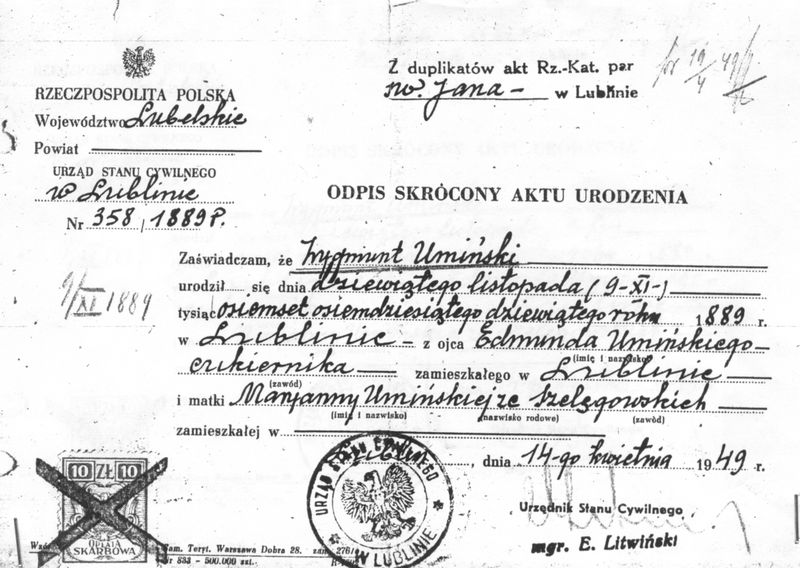 Z duplikatów akt Rz.-Kat. par
św. Jana — w Lublinie
19/4 49
RZECZPOSPOLITA POLSKA
Województwo Lubelskie
Powiat
URZĄD STANU CYWILNEGO
w Lublinie
Nr 358 / 1889 r.
ODPIS SKRÓCONY AKTU URODZENIA
Zaświadczam, że Zygmunt Umiński
urodził się dnia dziewiątego listopada (9-XI-)
tysiąc osiemset osiemdziesiątego dziewiątego roku 1889 r.
9/XI 1889
w Lublinie – z ojca Edmunda Umińskiego
(imię i nazwisko)
cukiernika — zamieszkałego w Lublinie
(zawód)
i matki Marjanny Umińskiej ze Szelągowskich
(imię i nazwisko) (nazwisko rodowe) (zawód)
zamieszkałej w
Lublin, dnia 14-go kwietnia 1949 r.
URZĄD STANU CYWILNEGO
W LUBLINIE
Urzędnik Stanu Cywilnego
mgr. E. Litwiński
10 ZŁ 10
OPŁATA
SKARBOWA
Sam. Teryt. Warszawa Dobra 28. zam. 276/
Nr 833 – 500.000 szt.